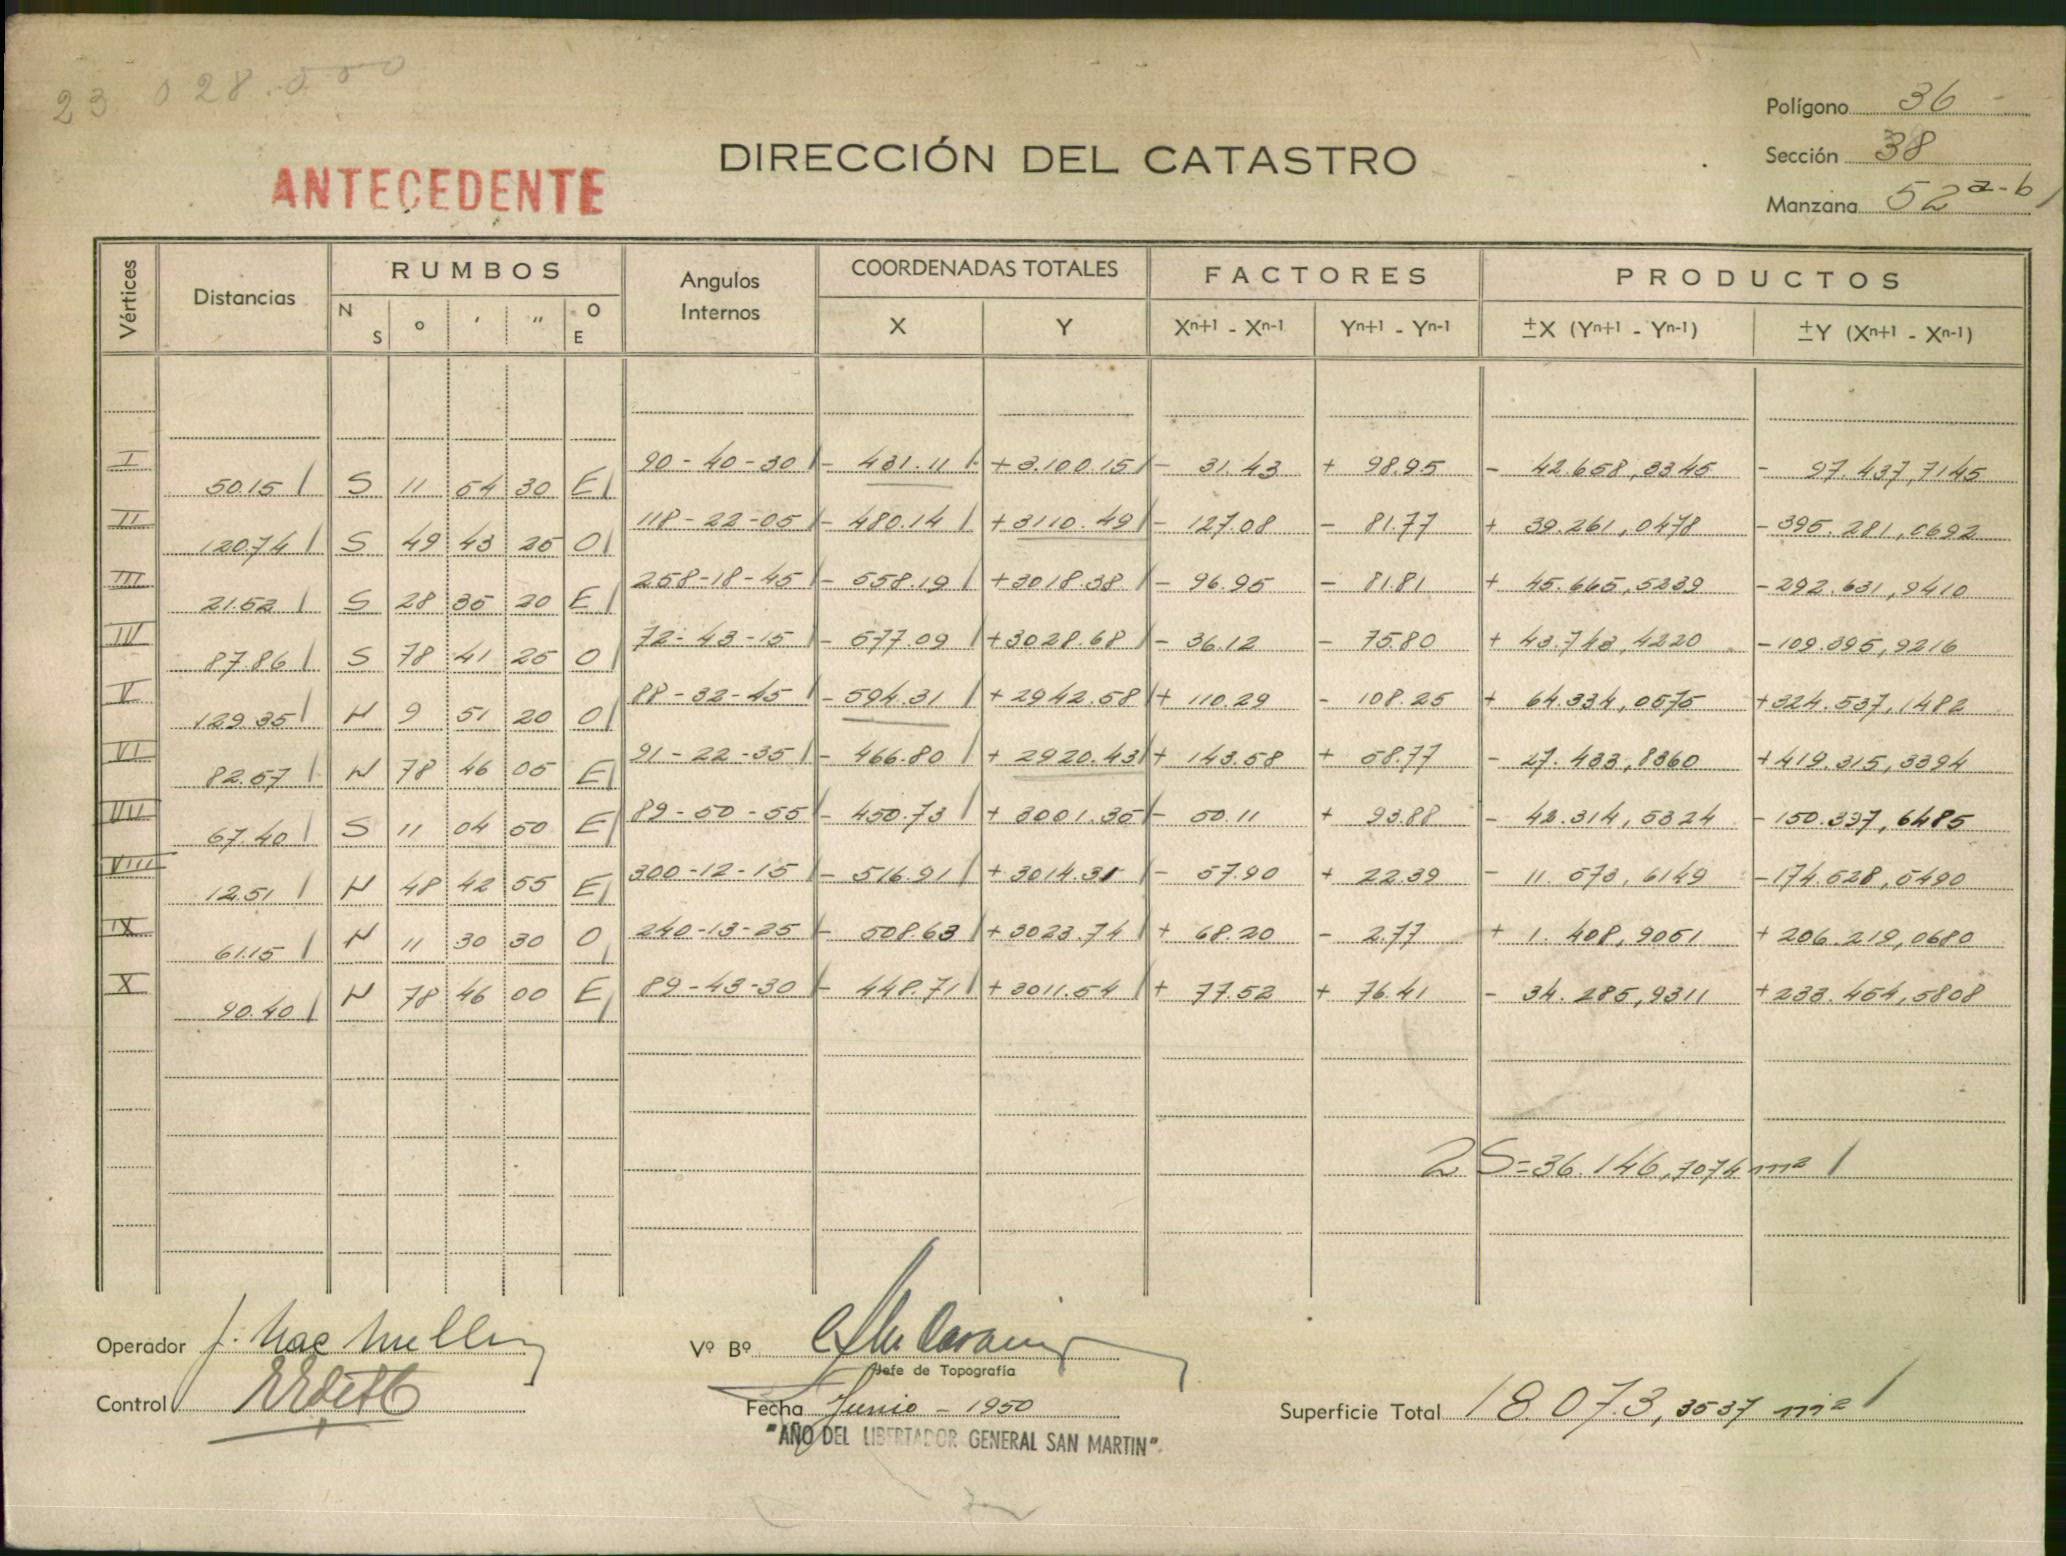 23 028.000
Polígono 36
DIRECCIÓN DEL CATASTRO
Sección 38
ANTECEDENTE
Manzana 52 a-b
Vértices Distancias RUMBOS Angulos Internos COORDENADAS TOTALES FACTORES PRODUCTOS
N S ° ' " O E X Y Xn+1 - Xn-1 Yn+1 - Yn-1 ±X (Yn+1 - Yn-1) ±Y (Xn+1 - Xn-1)
I 90-40-30 - 431.11 +3.100.15 - 31.43 + 98.95 - 42.658,3345 - 97.437,7145
50.15 S 11 54 30 E
II 118-22-05 - 480.14 +3110.49 - 127.08 - 81.77 + 39.261,0478 - 395.281,0692
120.74 S 49 43 25 O
III 258-18-45 - 558.19 +3018.38 - 96.95 - 81.81 + 45.665,5239 - 292.631,9410
21.52 S 28 35 20 E
IV 72-43-15 - 577.09 +3028.68 - 36.12 - 75.80 + 43.743,4220 - 109.395,9216
87.86 S 78 41 25 O
V 88-32-45 - 594.31 + 2942.58 + 110.29 - 108.25 + 64.334,0575 +324.537,1482
129.35 N 9 51 20 O
VI 91-22-35 - 466.80 + 2920.43 + 143.58 + 58.77 - 27.433,8360 +419.315,3394
82.57 N 78 46 05 E
VII 89-50-55 - 450.73 + 3001.35 - 50.11 + 93.88 - 42.314,5324 - 150.397,6485
67.40 S 11 04 50 E
VIII 300-12-15 - 516.91 +3014.31 - 57.90 + 22.39 - 11.573,6149 - 174.528,5490
12.51 N 48 42 55 E
IX 240-13-25 - 508.63 +3023.74 + 68.20 - 2.77 + 1.408,9051 + 206.219,0680
61.15 N 11 30 30 O
X 89-43-30 - 448.71 +3011.54 + 77.52 + 76.41 - 34.285,9311 +233.454,5808
90.40 N 78 46 00 E
2 S=36.146,7074 m2
Operador J. Mac Mullen Vº Bº
Jefe de Topografía
Control Fecha Junio - 1950 Superficie Total 18.073,3537 m2
"AÑO DEL LIBERTADOR GENERAL SAN MARTIN".